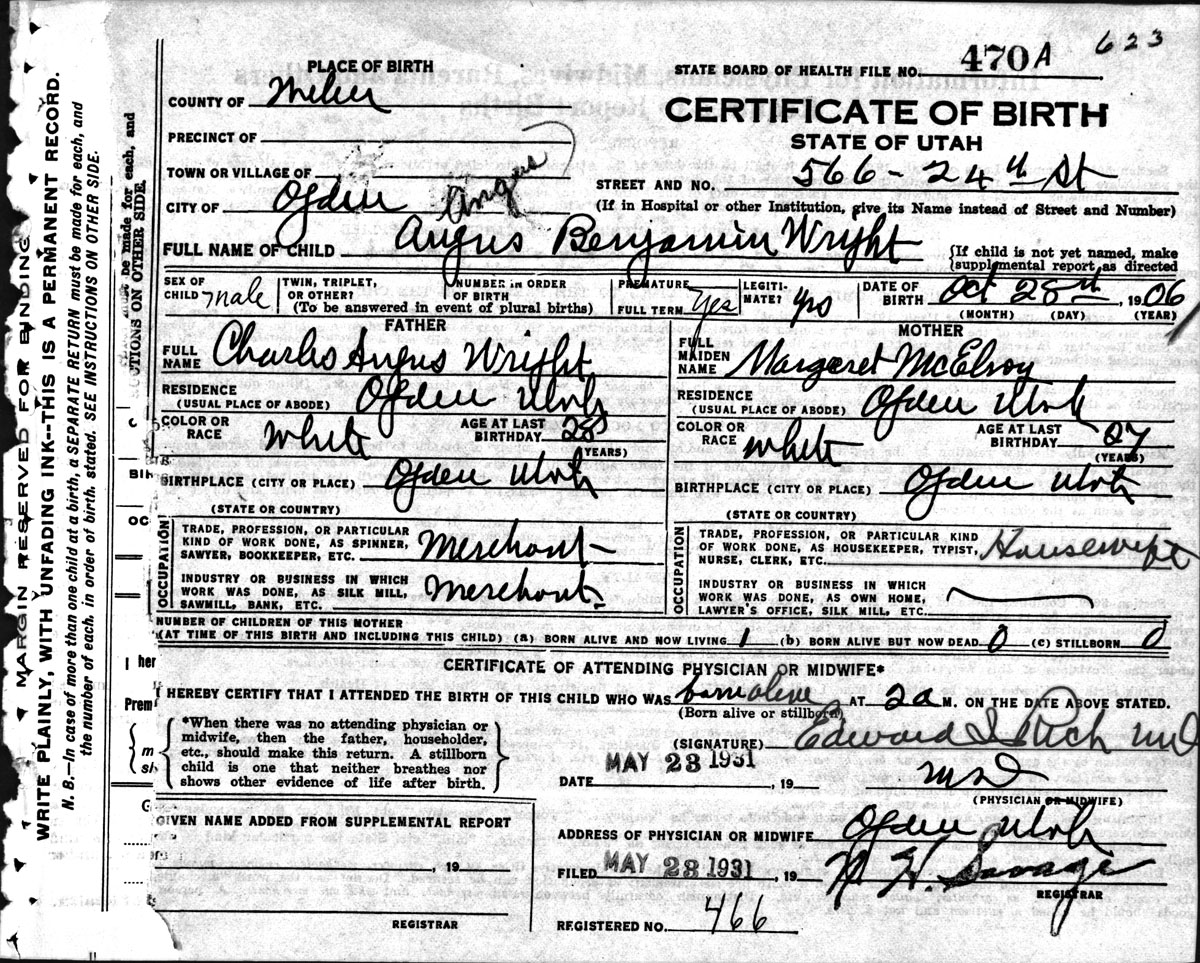 623
PLACE OF BIRTH
STATE BOARD OF HEALTH FILE NO. 470A
COUNTY OF Weber
CERTIFICATE OF BIRTH
PRECINCT OF
STATE OF UTAH
TOWN OR VILLAGE OF
STREET AND NO. 566 - 24th St
CITY OF Ogden Angus
(If in Hospital or other Institution, give its Name instead of Street and Number)
FULL NAME OF CHILD Angus Benjamin Wright
{If child is not yet named, make
{supplemental report as directed
SEX OF CHILD male
TWIN, TRIPLET, OR OTHER?
NUMBER in ORDER OF BIRTH
(To be answered in event of plural births)
PREMATURE
FULL TERM Yes
LEGITI-
MATE? yes
DATE OF BIRTH Oct 28th, 1906
(MONTH) (DAY) (YEAR)
FATHER
FULL NAME Charles Angus Wright
RESIDENCE
(USUAL PLACE OF ABODE) Ogden Utah
COLOR OR RACE white
AGE AT LAST BIRTHDAY 28
(YEARS)
BIRTHPLACE (CITY OR PLACE) Ogden Utah
(STATE OR COUNTRY)
OCCUPATION
TRADE, PROFESSION, OR PARTICULAR
KIND OF WORK DONE, AS SPINNER,
SAWYER, BOOKKEEPER, ETC. Merchant
INDUSTRY OR BUSINESS IN WHICH
WORK WAS DONE, AS SILK MILL,
SAWMILL, BANK, ETC. Merchant
MOTHER
FULL MAIDEN NAME Margaret McElroy
RESIDENCE
(USUAL PLACE OF ABODE) Ogden Utah
COLOR OR RACE white
AGE AT LAST BIRTHDAY 27
(YEARS)
BIRTHPLACE (CITY OR PLACE) Ogden Utah
(STATE OR COUNTRY)
OCCUPATION
TRADE, PROFESSION, OR PARTICULAR KIND
OF WORK DONE, AS HOUSEKEEPER, TYPIST,
NURSE, CLERK, ETC. Housewife
INDUSTRY OR BUSINESS IN WHICH
WORK WAS DONE, AS OWN HOME,
LAWYER'S OFFICE, SILK MILL, ETC.
NUMBER OF CHILDREN OF THIS MOTHER
(AT TIME OF THIS BIRTH AND INCLUDING THIS CHILD) (a) BORN ALIVE AND NOW LIVING 1 (b) BORN ALIVE BUT NOW DEAD 0 (c) STILLBORN 0
CERTIFICATE OF ATTENDING PHYSICIAN OR MIDWIFE*
I HEREBY CERTIFY THAT I ATTENDED THE BIRTH OF THIS CHILD WHO WAS born alive AT 2a M. ON THE DATE ABOVE STATED.
(Born alive or stillborn)
*When there was no attending physician or
midwife, then the father, householder,
etc., should make this return. A stillborn
child is one that neither breathes nor
shows other evidence of life after birth.
(SIGNATURE) Edward I Rich MD
DATE MAY 23 1931, 19 MD
(PHYSICIAN OR MIDWIFE)
GIVEN NAME ADDED FROM SUPPLEMENTAL REPORT
, 19
REGISTRAR
ADDRESS OF PHYSICIAN OR MIDWIFE Ogden Utah
FILED MAY 23 1931, 19 H. Savage
REGISTRAR
REGISTERED NO. 466
MARGIN RESERVED FOR BINDING
WRITE PLAINLY, WITH UNFADING INK--THIS IS A PERMANENT RECORD.
N. B.—In case of more than one child at a birth, a SEPARATE RETURN must be made for each, and
the number of each, in order of birth, stated. SEE INSTRUCTIONS ON OTHER SIDE.
be made for each, and
UCTIONS ON OTHER SIDE.
I her
Prem